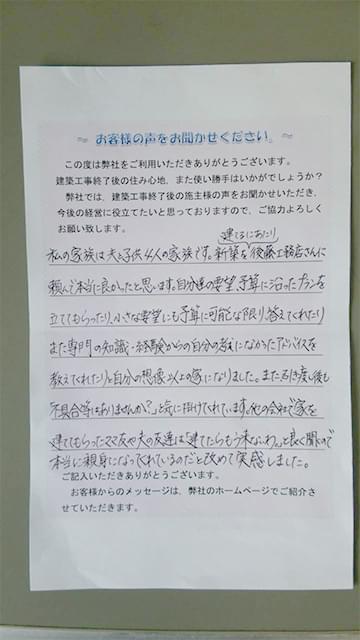 ～ お客様の声をお聞かせください。 ～
この度は弊社をご利用いただきありがとうございます。
建築工事終了後の住み心地、また使い勝手はいかがでしょうか？
弊社では、建築工事終了後の施主様の声をお聞かせいただき、
今後の経営に役立てたいと思っておりますので、ご協力よろしく
お願い致します。
建てるにあたり
私の家族は夫と子供4人の家族です。新築を後藤工務店さんに
頼んで本当に良かったと思います。自分達の要望、予算に沿ったプランを
立ててもらったり、小さな要望にも予算に可能な限り答えてくれたり
また専門の知識・経験からの自分の考えになかったアドバイスを
教えてくれたりと自分の想像以上の家になりました。また引き渡し後も
「不具合等はありませんか？」と気に掛けてくれています。他の会社で家を
建てもらったママ友や夫の友達は「建てたらもう来ないわ。」と良く聞くので
本当に親身になってくれているのだと改めて実感しました。
ご記入いただきありがとうございます。
お客様からのメッセージは、弊社のホームページでご紹介さ
せていただきます。